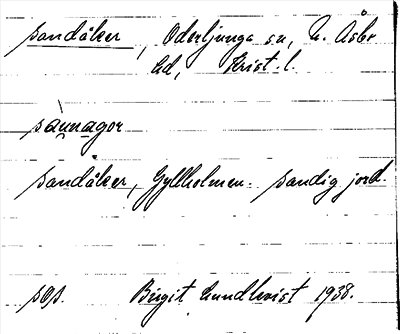 sandåker, Oderljunga sn, N. Åsbo
hd, Krist. l.
sànnagor
sandåker, Gyllholmen. sandig jord.
sqs. Birgit Lundkvist 1938.